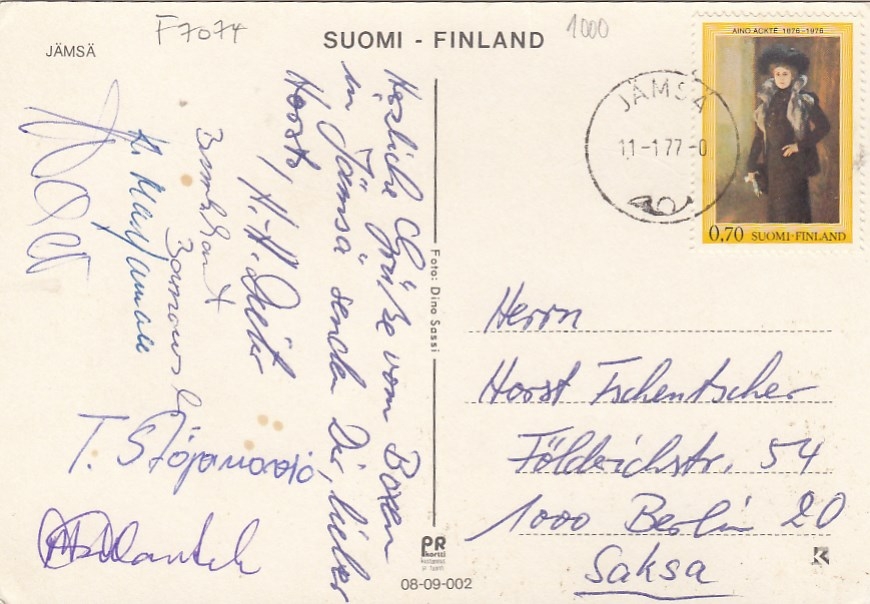 F7074
1000
JÄMSÄ
SUOMI - FINLAND
AINO ACKTÉ 1876-1976
0,70 SUOMI-FINLAND
JÄMSÄ
11-1 77-0
Herzliche Grüße vom Boxen
in Jämsä senden Dir, lieber
Horst, H.-H. Dieter
T. Stojanovski
Foto: Dino Sassi
Herrn
Horst Tschentscher
Földerichstr. 54
1000 Berlin 20
Saksa
PR
kortti
08-09-002